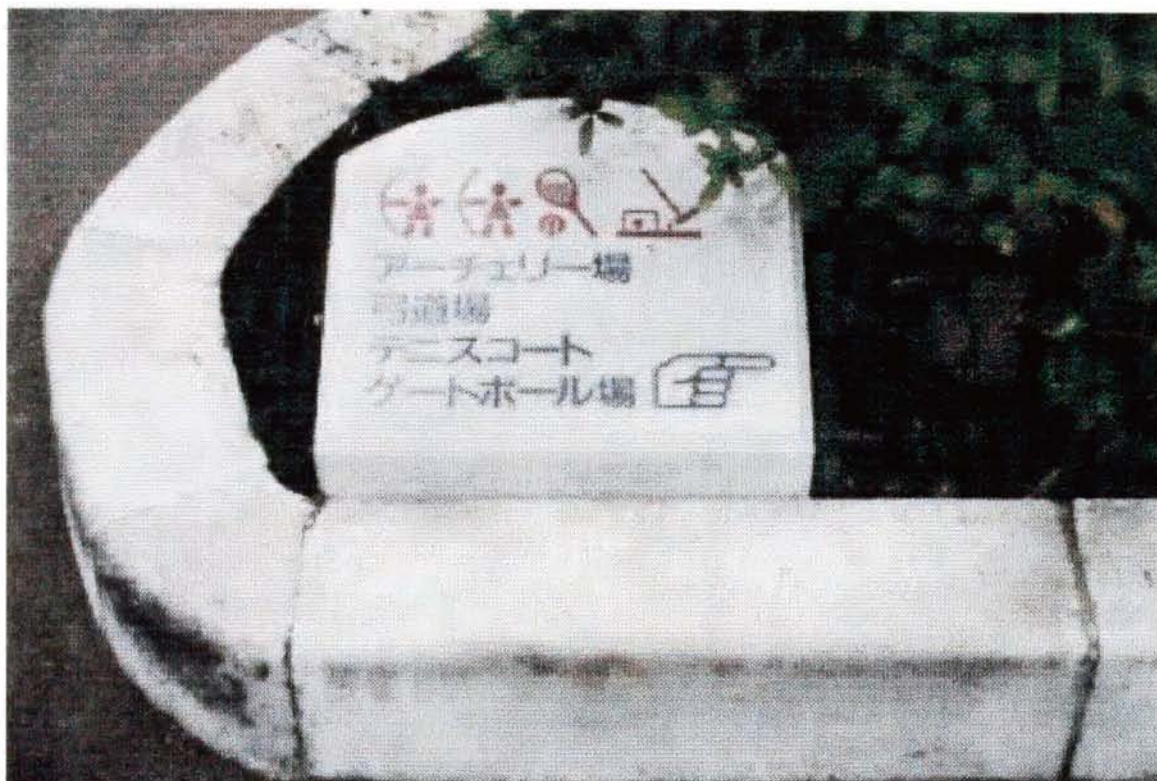 アーチェリー場
弓道場
テニスコート
ゲートボール場